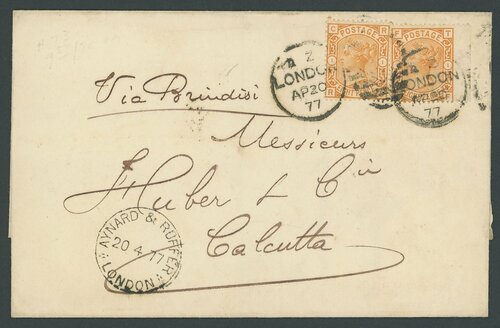 POSTAGE
POSTAGE
2
LONDON
AP20
77
LONDON
AP20
77
Via Brindisi
Messieurs
Huber & Cie
Calcutta
AYNARD & RUFFER
20 4 77
LONDON